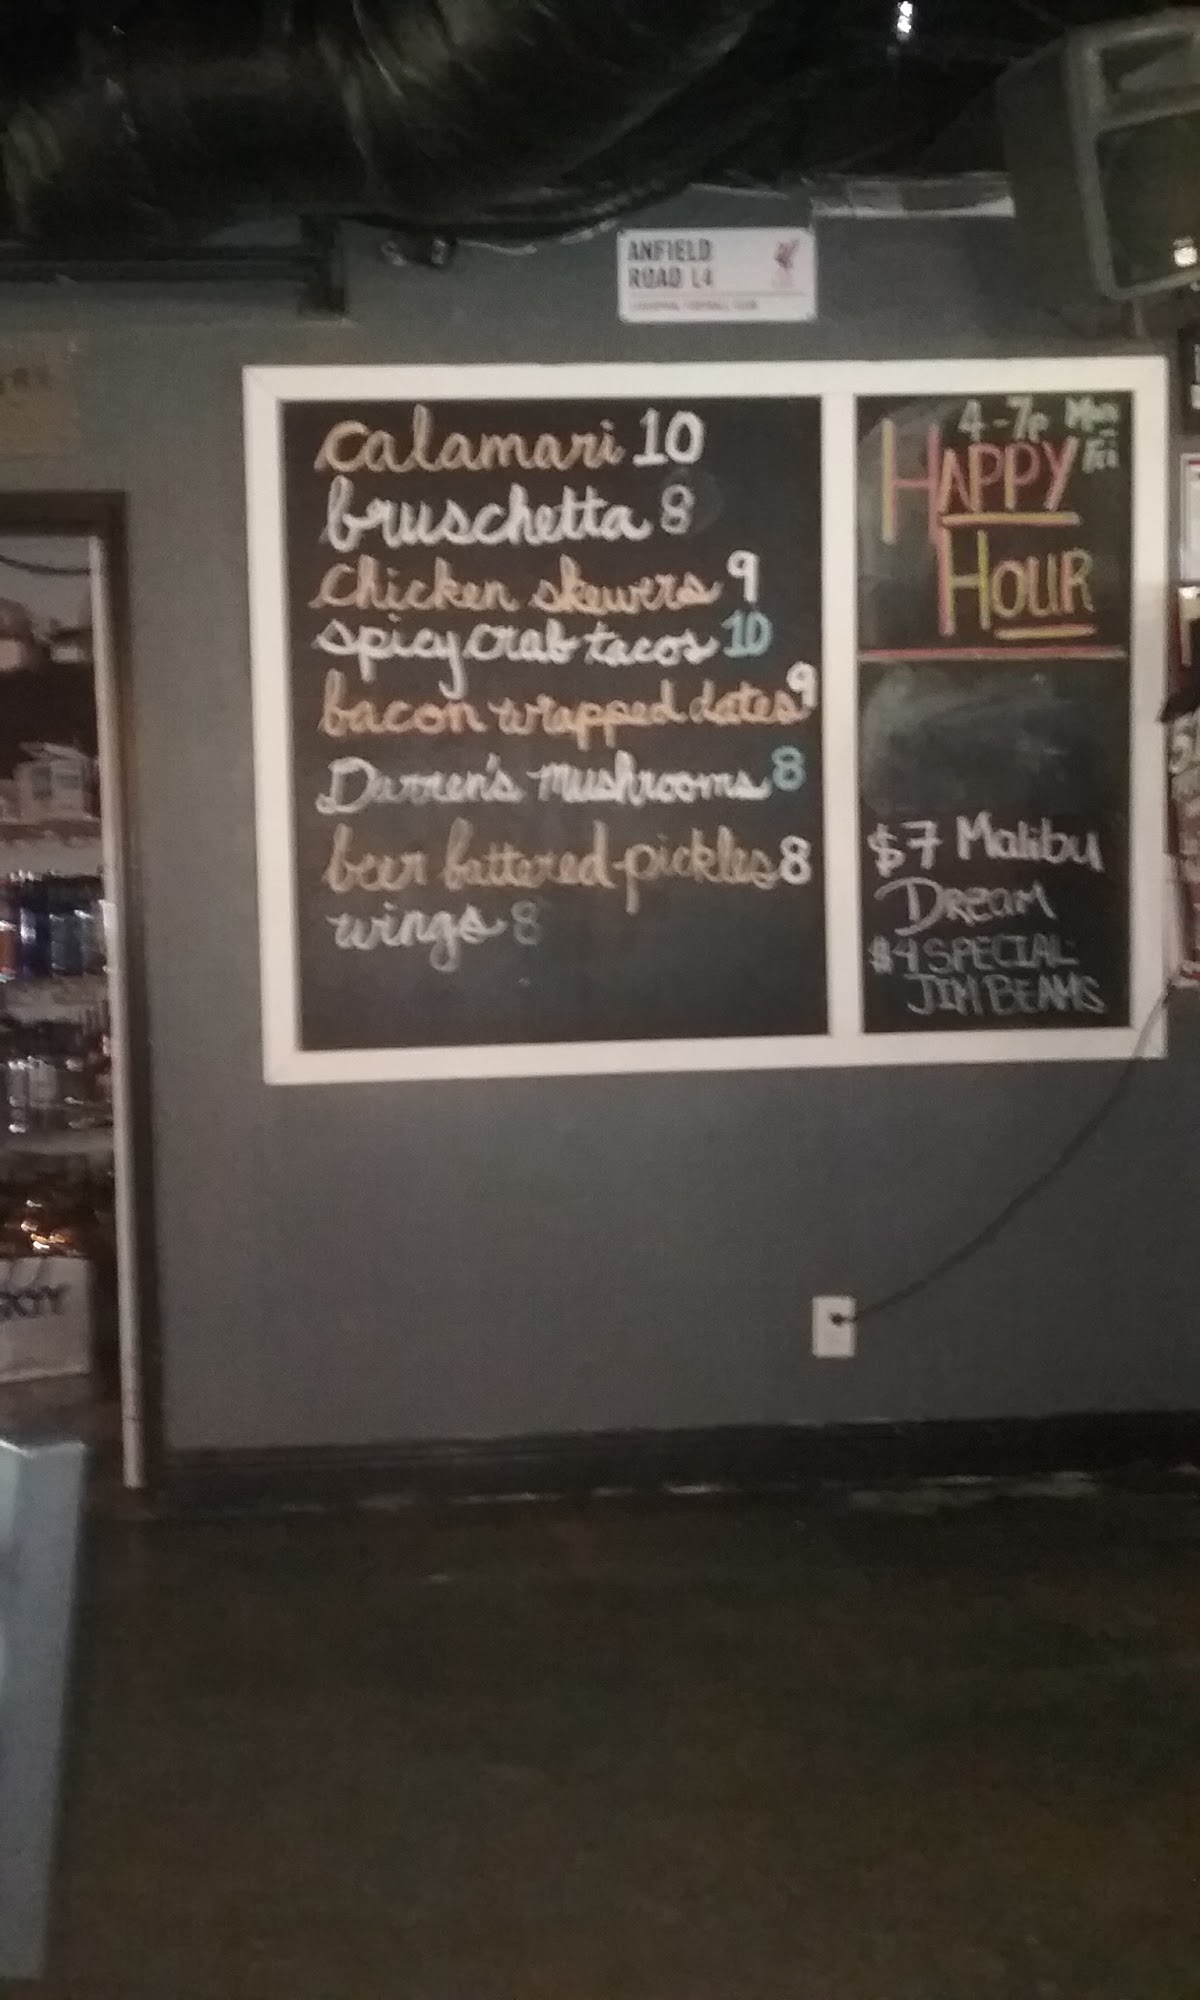 ANFIELD
ROAD L4
calamari 10
bruschetta 8
chicken skewers 9
spicy crab tacos 10
bacon wrapped dates 9
Darren's mushrooms 8
beer battered pickles 8
wings 8
4-7p Mon
Fri
HAPPY
HOUR
$7 Malibu
DREAM
$4 SPECIAL
JIM BEAMS